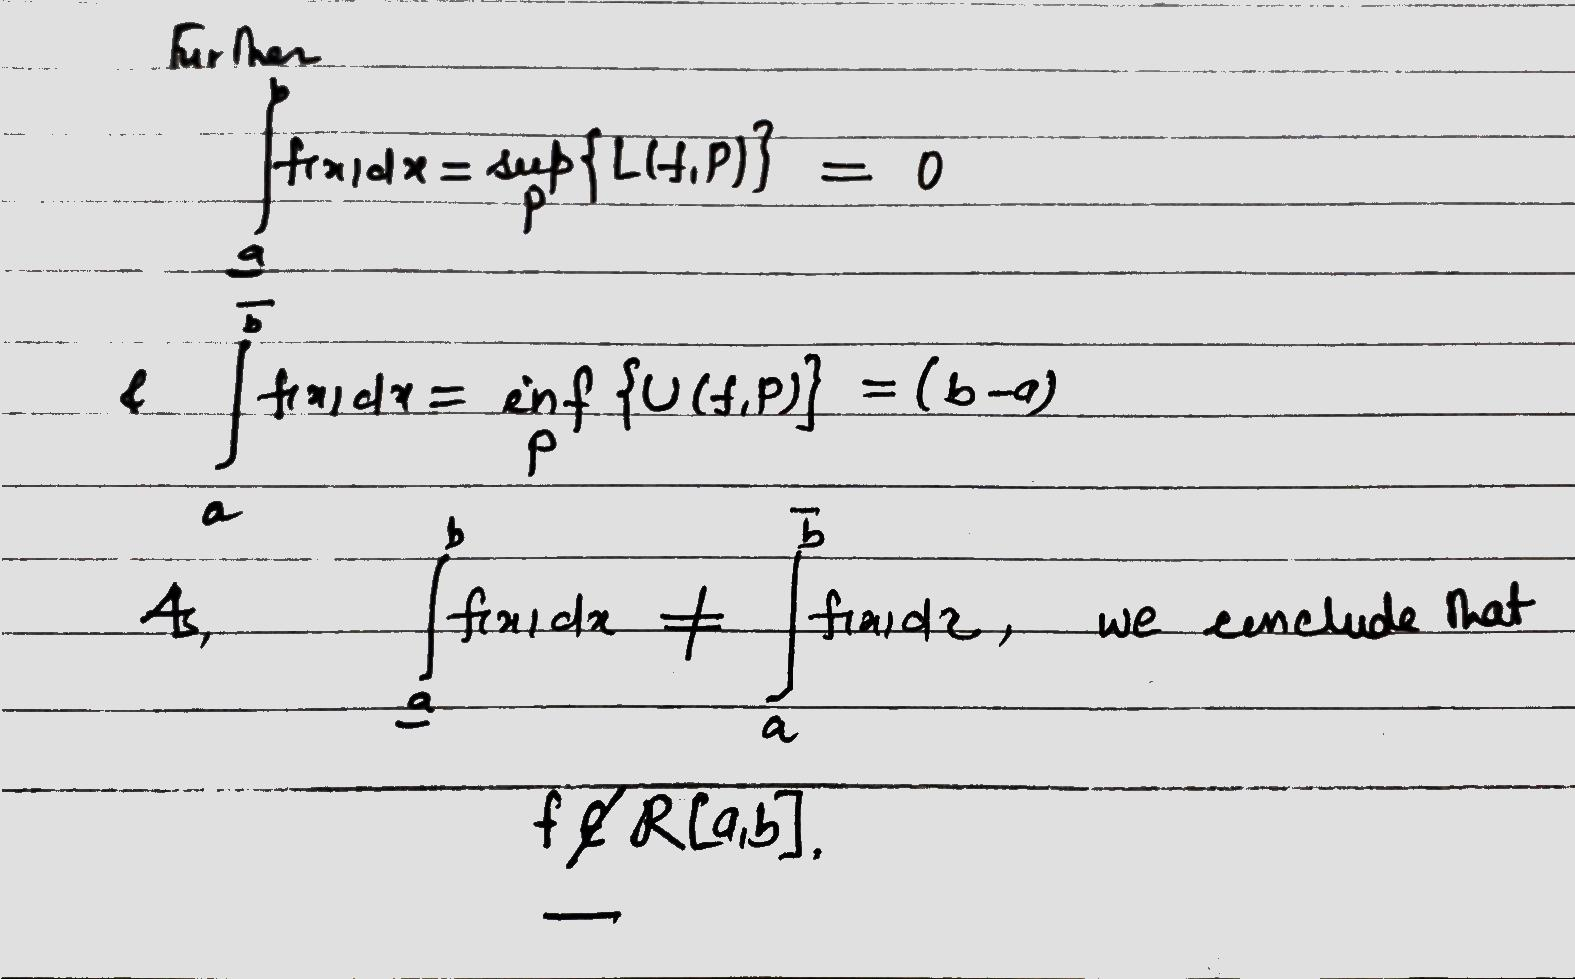 Further
∫_{\underline{a}}^{b} f(x)dx = sup_P {L(f,P)} = 0
& ∫_{a}^{\overline{b}} f(x)dx = inf_P {U(f,P)} = (b-a)
As, ∫_{\underline{a}}^{b} f(x)dx ≠ ∫_{a}^{\overline{b}} f(x)dx, we conclude that
f ∉ R[a,b].